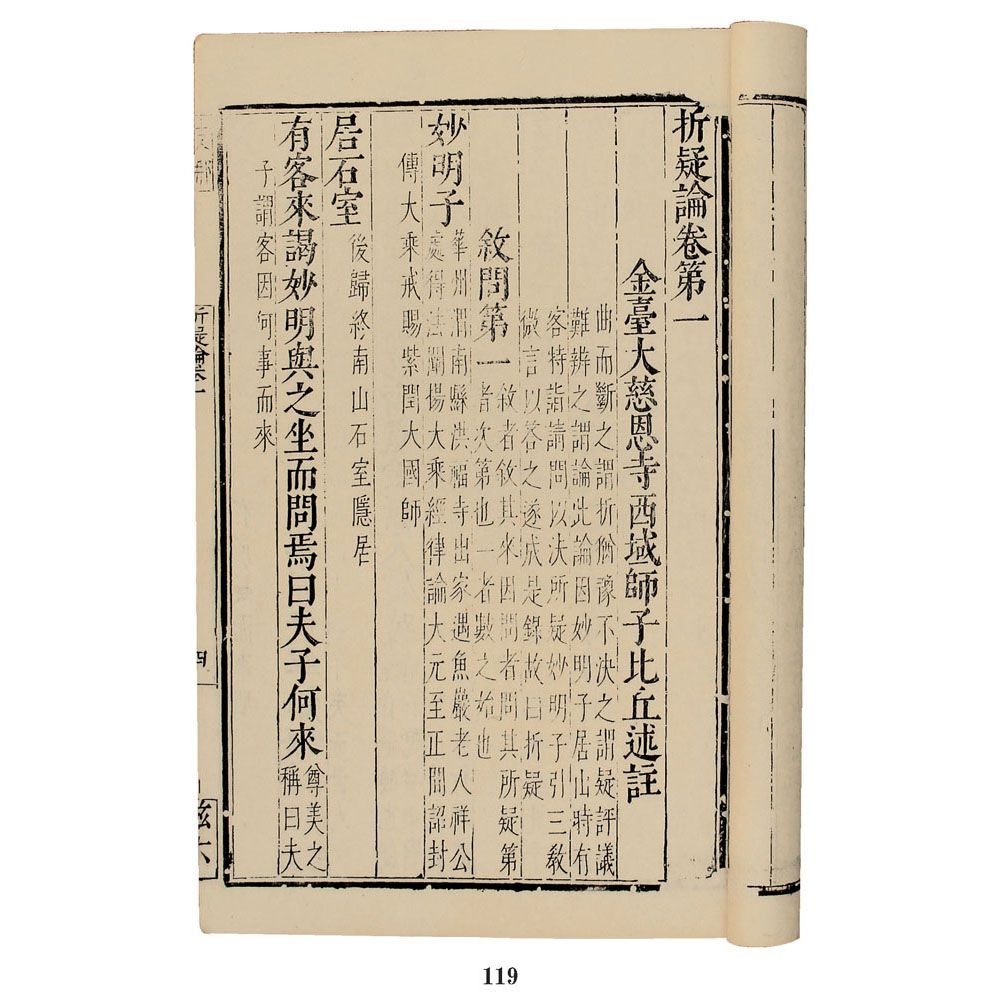 折疑論卷第一
金臺大慈恩寺西域師子比丘述註
曲而斷之謂折猶豫不決之謂疑評議
難辨之謂論此論因妙明子居山時有
客特詣請問以決所疑妙明子引三教
微言以答之遂成是錄故曰折疑
敘問第一
敘者敘其來因問者問其所疑第
者次第也一者數之始也
妙明子
華州渭南縣洪福寺出家遇魚巖老人祥公
處得法闡揚大乘經律論大元至正間詔封
傳大乘戒賜紫閏大國師
居石室
後歸終南山石室隱居
有客來謁妙明與之坐而問焉曰夫子何來
尊美之
稱曰夫
子謂客因何事而來
折疑論卷一
四
茲六
119